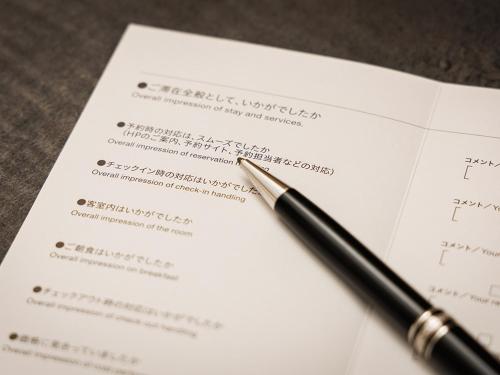 ●ご滞在全般として、いかがでしたか
Overall impression of stay and services.
●予約時の対応は、スムーズでしたか
(HPのご案内、予約サイト、予約担当者などの対応)
Overall impression of reservation
●チェックイン時の対応はいかがでしたか
Overall impression of check-in handling
●客室内はいかがでしたか
Overall impression of the room
●ご朝食はいかがでしたか
Overall impression on breakfast
●チェックアウト時の対応はいかがでしたか
Overall impression of check-out handling
●価格に見合っていましたか
Overall impression of
コメント
コメント／You
コメント／You
コメント／Your